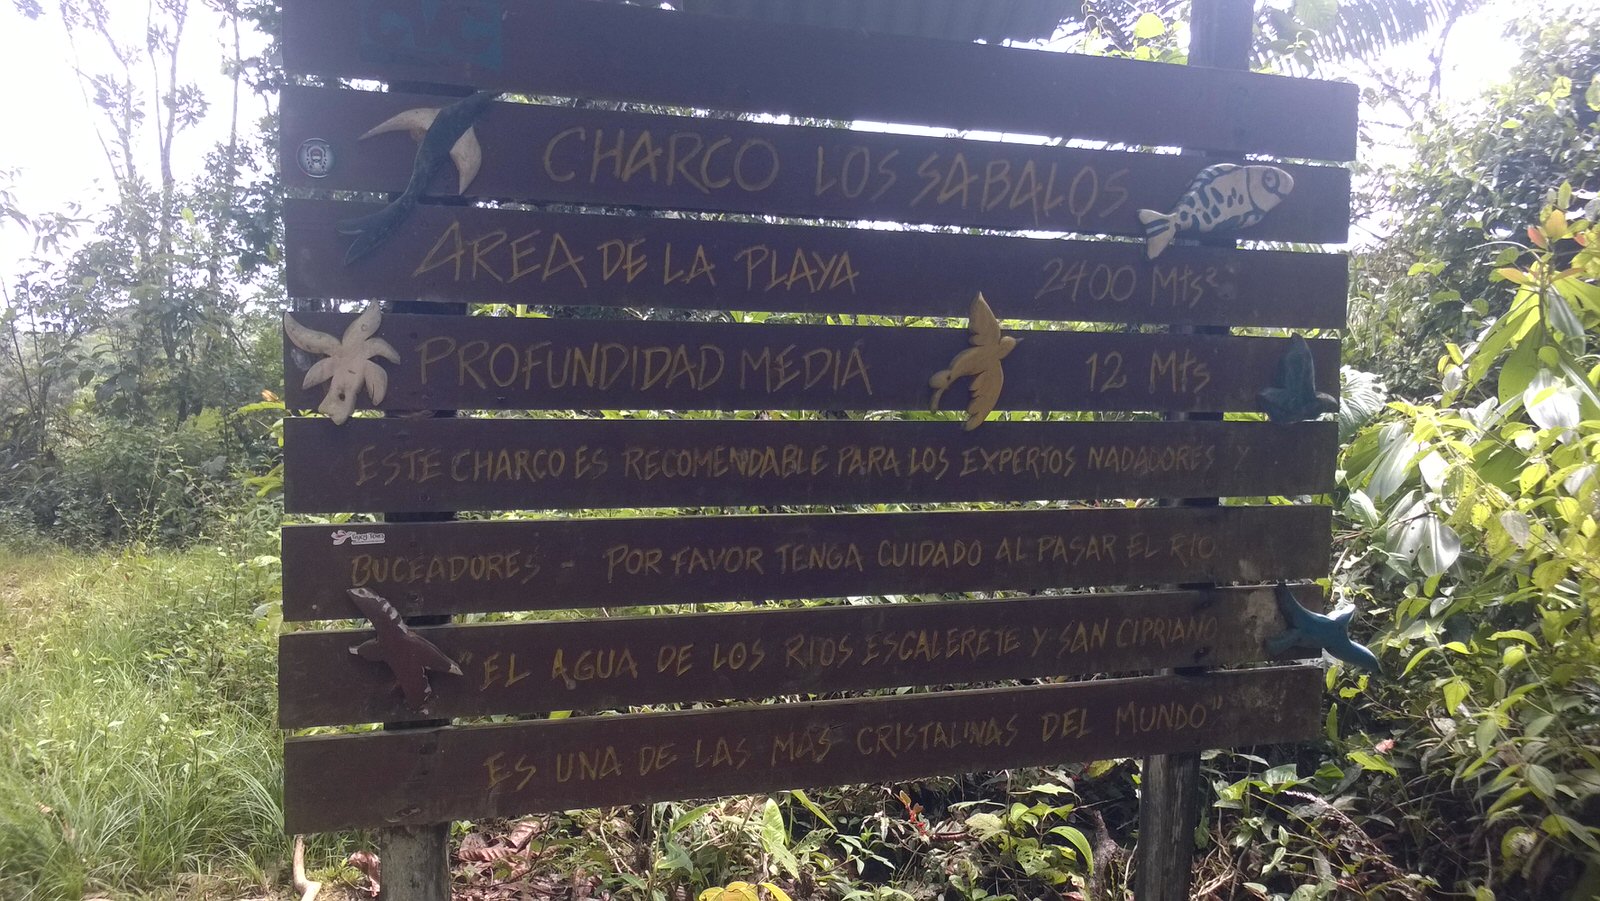 CHARCO LOS SABALOS
AREA DE LA PLAYA 2400 Mts²
PROFUNDIDAD MEDIA 12 Mts
ESTE CHARCO ES RECOMENDABLE PARA LOS EXPERTOS NADADORES Y
BUCEADORES - POR FAVOR TENGA CUIDADO AL PASAR EL RIO
"EL AGUA DE LOS RIOS ESCALERETE Y SAN CIPRIANO
ES UNA DE LAS MAS CRISTALINAS DEL MUNDO"